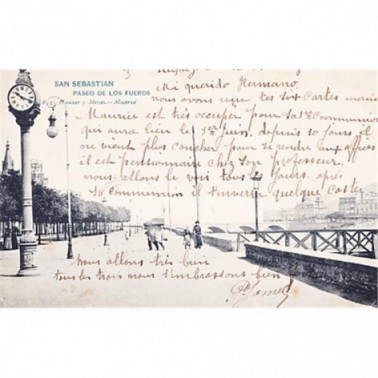 SAN SEBASTIAN
PASEO DE LOS FUEROS
Hauser y Menet.—Madrid
Mi querido Hermano
nous avons reçu tes six cartes
Maurice est très occuper pour sa 1re Communion
qui aura lieu le 1er juin. depuis 10 jours il
ne vient plus coucher pour
il est pensionnaire chez son professeur
nous allons le voir tous les jours. après
sa Communion il t'enverra quelque Cartes
nous allons très bien
tous les trois nous t'embrassons bien